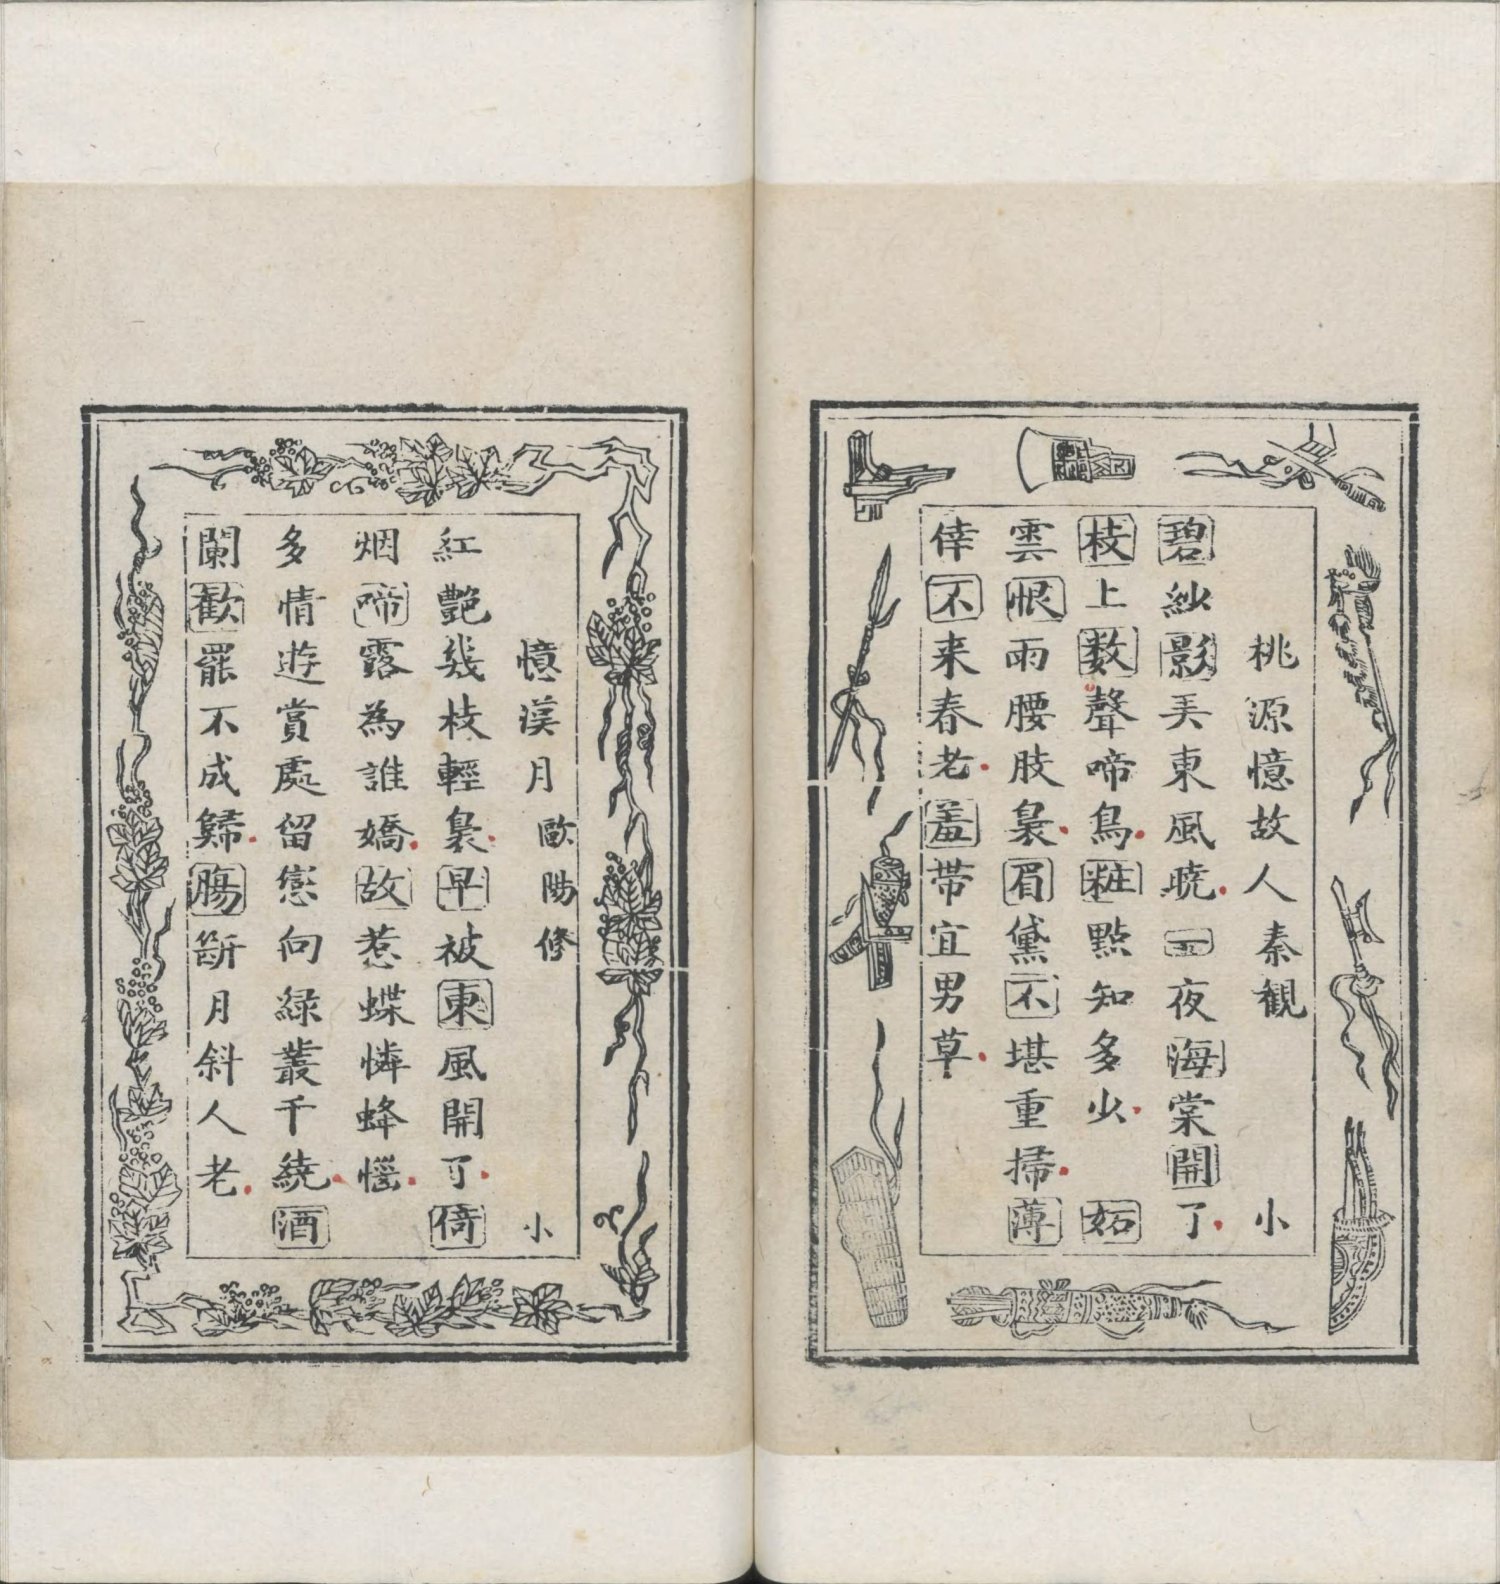 桃源憶故人秦観 小
碧紗影弄東風暁一夜海棠開了
枝上数聲啼鳥粧點知多少 妬
雲恨雨腰肢裊眉黛不堪重掃薄
倖不来春老羞帯宜男草
憶漢月 歐陽修 小
紅艷幾枝輕裊早被東風開了倚
烟啼露為誰嬌故惹蝶憐蜂惱
多情遊賞處留戀向緑叢千繞酒
闌歡罷不成歸腸斷月斜人老